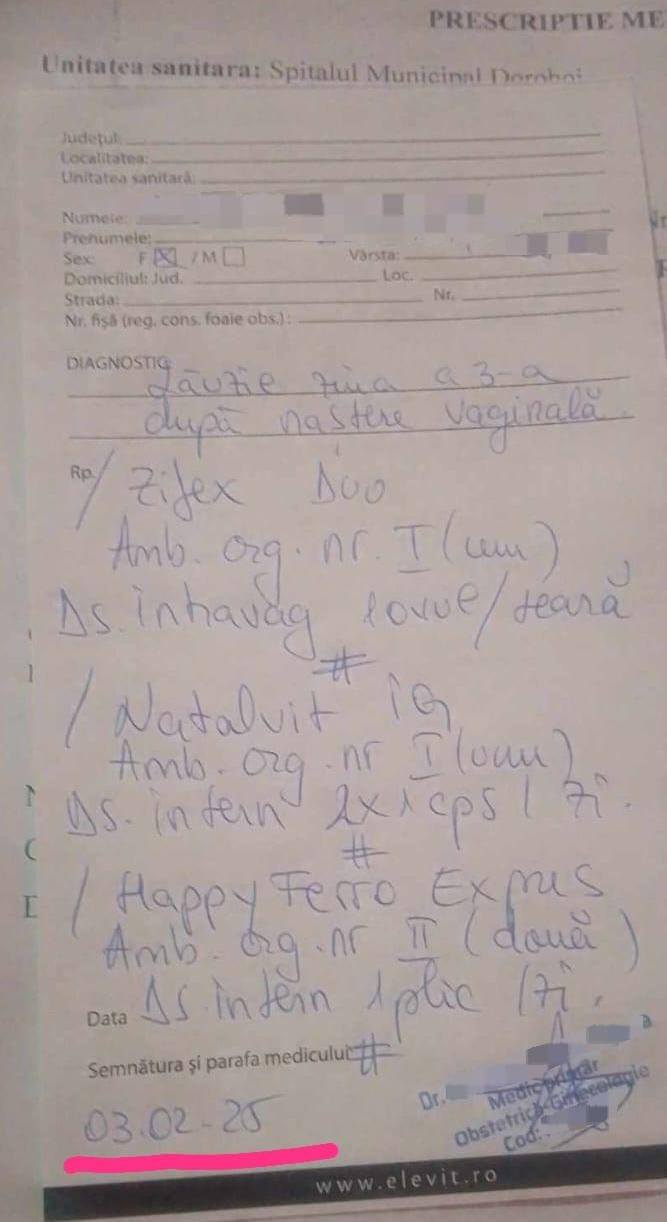 PRESCRIPTIE ME
Unitatea sanitara: Spitalul Municipal Dorohoi
Județul:
Localitatea:
Unitatea sanitară:
Numele:
Prenumele:
Sex: F X / M Vârsta:
Domiciliul: Jud. Loc.
Strada: Nr.
Nr. fișă (reg. cons. foaie obs.):
DIAGNOSTIC
Lăuzie ziua a 3-a
după naștere vaginală.
Rp. / Zifex Duo
Amb. org. nr. I (unu)
Ds. intravag 1 ovul / seară
#
/ Natalvit
Amb. org. nr I (unu)
Ds. intern 2x1 cps / zi.
#
/ Happy Ferro Expres
Amb. org. nr II (două)
Data Ds. intern 1 plic / zi.
Semnătura și parafa medicului #
Dr.
Medic primar
Obstetrică-Ginecologie
Cod:
03.02-25
www.elevit.ro